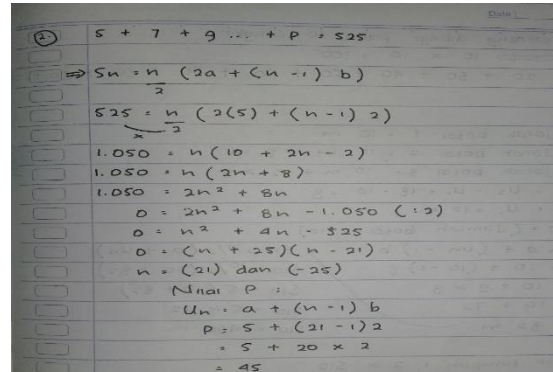 Date :
2. 5 + 7 + 9 ... + P = 525
⇒ Sn = n/2 (2a + (n - 1) b)
525 = n/2 (2(5) + (n - 1) 2)
x
1.050 = n(10 + 2n - 2)
1.050 = n(2n + 8)
1.050 = 2n² + 8n
0 = 2n² + 8n - 1.050 (:2)
0 = n² + 4n - 525
0 = (n + 25)(n - 21)
n = (21) dan (-25)
Nilai P :
Un = a + (n - 1) b
P = 5 + (21 - 1) 2
= 5 + 20 x 2
= 45